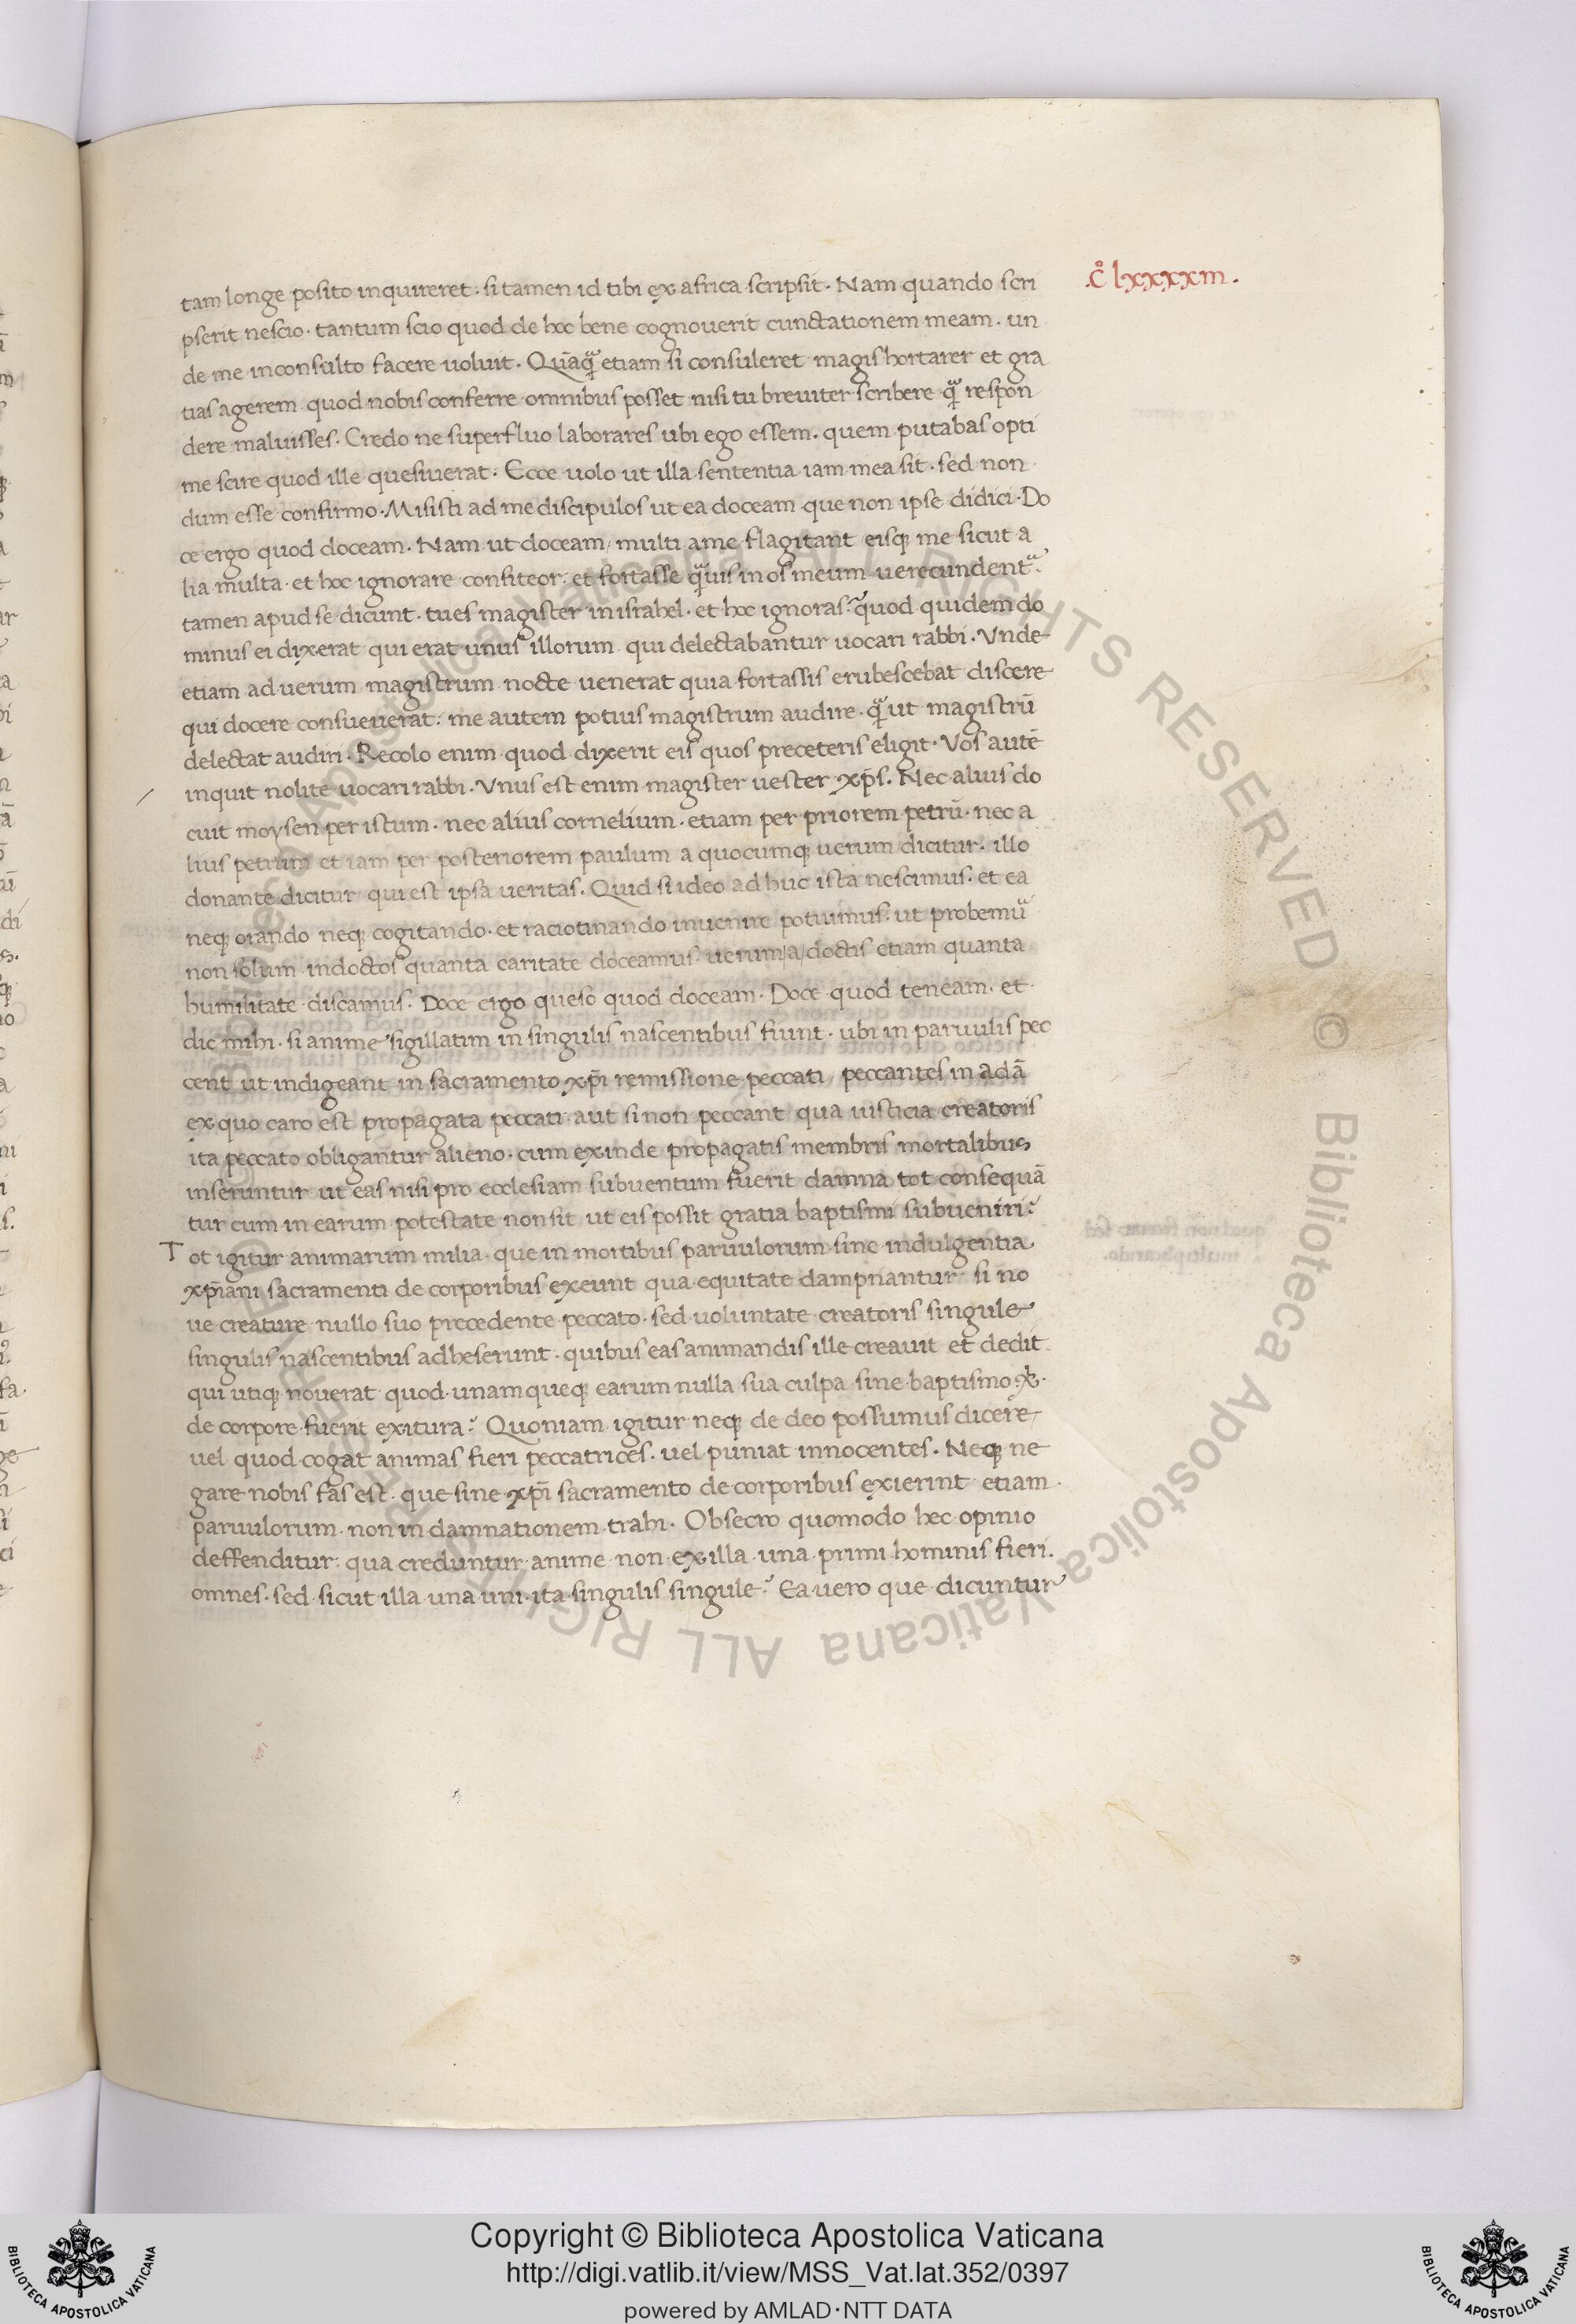 .c̊ lxxxxııı.
tam longe posito inquireret: si tamen id tibi ex africa scripsit. Nam quando scri
pserit nescio. tantum scio quod de hoc bene cognouerit cunctationem meam. un
de me inconsulto facere uoluit. Quāqͣ etiam si consuleret magis hortarer et gra
tias agerem quod nobis conferre omnibus posset nisi tu breuiter scribere qͣ respon
dere maluisses. Credo ne superfluo laborares ubi ego essem. quem putabas opti
me scire quod ille quesiuerat. Ecce uolo ut illa sententia iam mea sit. sed non
dum esse confirmo. Misisti ad me discipulos ut ea doceam que non ipse didici. Do
ce ergo quod doceam. Nam ut doceam multi a me flagitant eisqꝫ me sicut a
lia multa. et hoc ignorare confiteor. et fortasse qͣuis in os meum uerecundentͬ.
tamen apud se dicunt. tu es magister in israhel. et hoc ignoras? quod quidem do
minus ei dixerat qui erat unus illorum qui delectabantur uocari rabbi. Vnde
etiam ad uerum magistrum nocte uenerat quia fortassis erubescebat discere
qui docere consueuerat. me autem potius magistrum audire. qͣ ut magistrū
delectat audiri. Recolo enim quod dixerit eis quos preceteris eligit. Vos autē
inquit nolite uocari rabbi. Vnus est enim magister uester xp̄s. Nec alius do
cuit moysen per istum. nec alius cornelium. etiam per priorem petrū. nec a
lius petrum et iam per posteriorem paulum a quocumqꝫ uerum dicitur. illo
donante dicitur qui est ipsa ueritas. Quid si ideo ad huc ista nescimus. et ea
neqꝫ orando neqꝫ cogitando. et raciotinando inuenire potuimus. ut probemͬ
non solum indoctos quanta caritate doceamus. uerum a doctis etiam quanta
humilitate discamus. Doce ergo queso quod doceam. Doce quod teneam. et
dic mihi. si anime sigillatim in singulis nascentibus fiunt. ubi in paruulis pec
cent ut indigeant in sacramento xp̄i remissione peccati, peccantes in adā
ex quo caro est propagata peccati. aut si non peccant qua iusticia creatoris
ita peccato obligantur alieno. cum exinde propagatis membris mortalibus
inseruntur ut eas nisi pro ecclesiam subuentum fuerit damna tot consequā
tur cum in earum potestate non sit ut eis possit gratia baptismi subueniri?
Tot igitur animarum milia. que in mortibus paruulorum sine indulgentia
xp̄iani sacramenti de corporibus exeunt qua equitate dampnantur si no
ue creature nullo suo precedente peccato. sed uoluntate creatoris singule
singulis nascentibus adheserunt. quibus eas animandis ille creauit et dedit.
qui utiqꝫ nouerat quod unamqueqꝫ earum nulla sua culpa sine baptismo
de corpore fuerit exitura? Quoniam igitur neqꝫ de deo possumus dicere
uel quod cogat animas fieri peccatrices. uel puniat innocentes. Neqꝫ ne
gare nobis fas est. que sine xp̄i sacramento de corporibus exierint etiam
paruulorum non in damnationem trahi. Obsecro quomodo hec opinio
deffenditur: qua creduntur anime non ex illa una primi hominis fieri.
omnes. sed sicut illa una uni. ita singulis singule? Ea uero que dicuntur
Copyright © Biblioteca Apostolica Vaticana
http://digi.vatlib.it/view/MSS_Vat.lat.352/0397
powered by AMLAD·NTT DATA